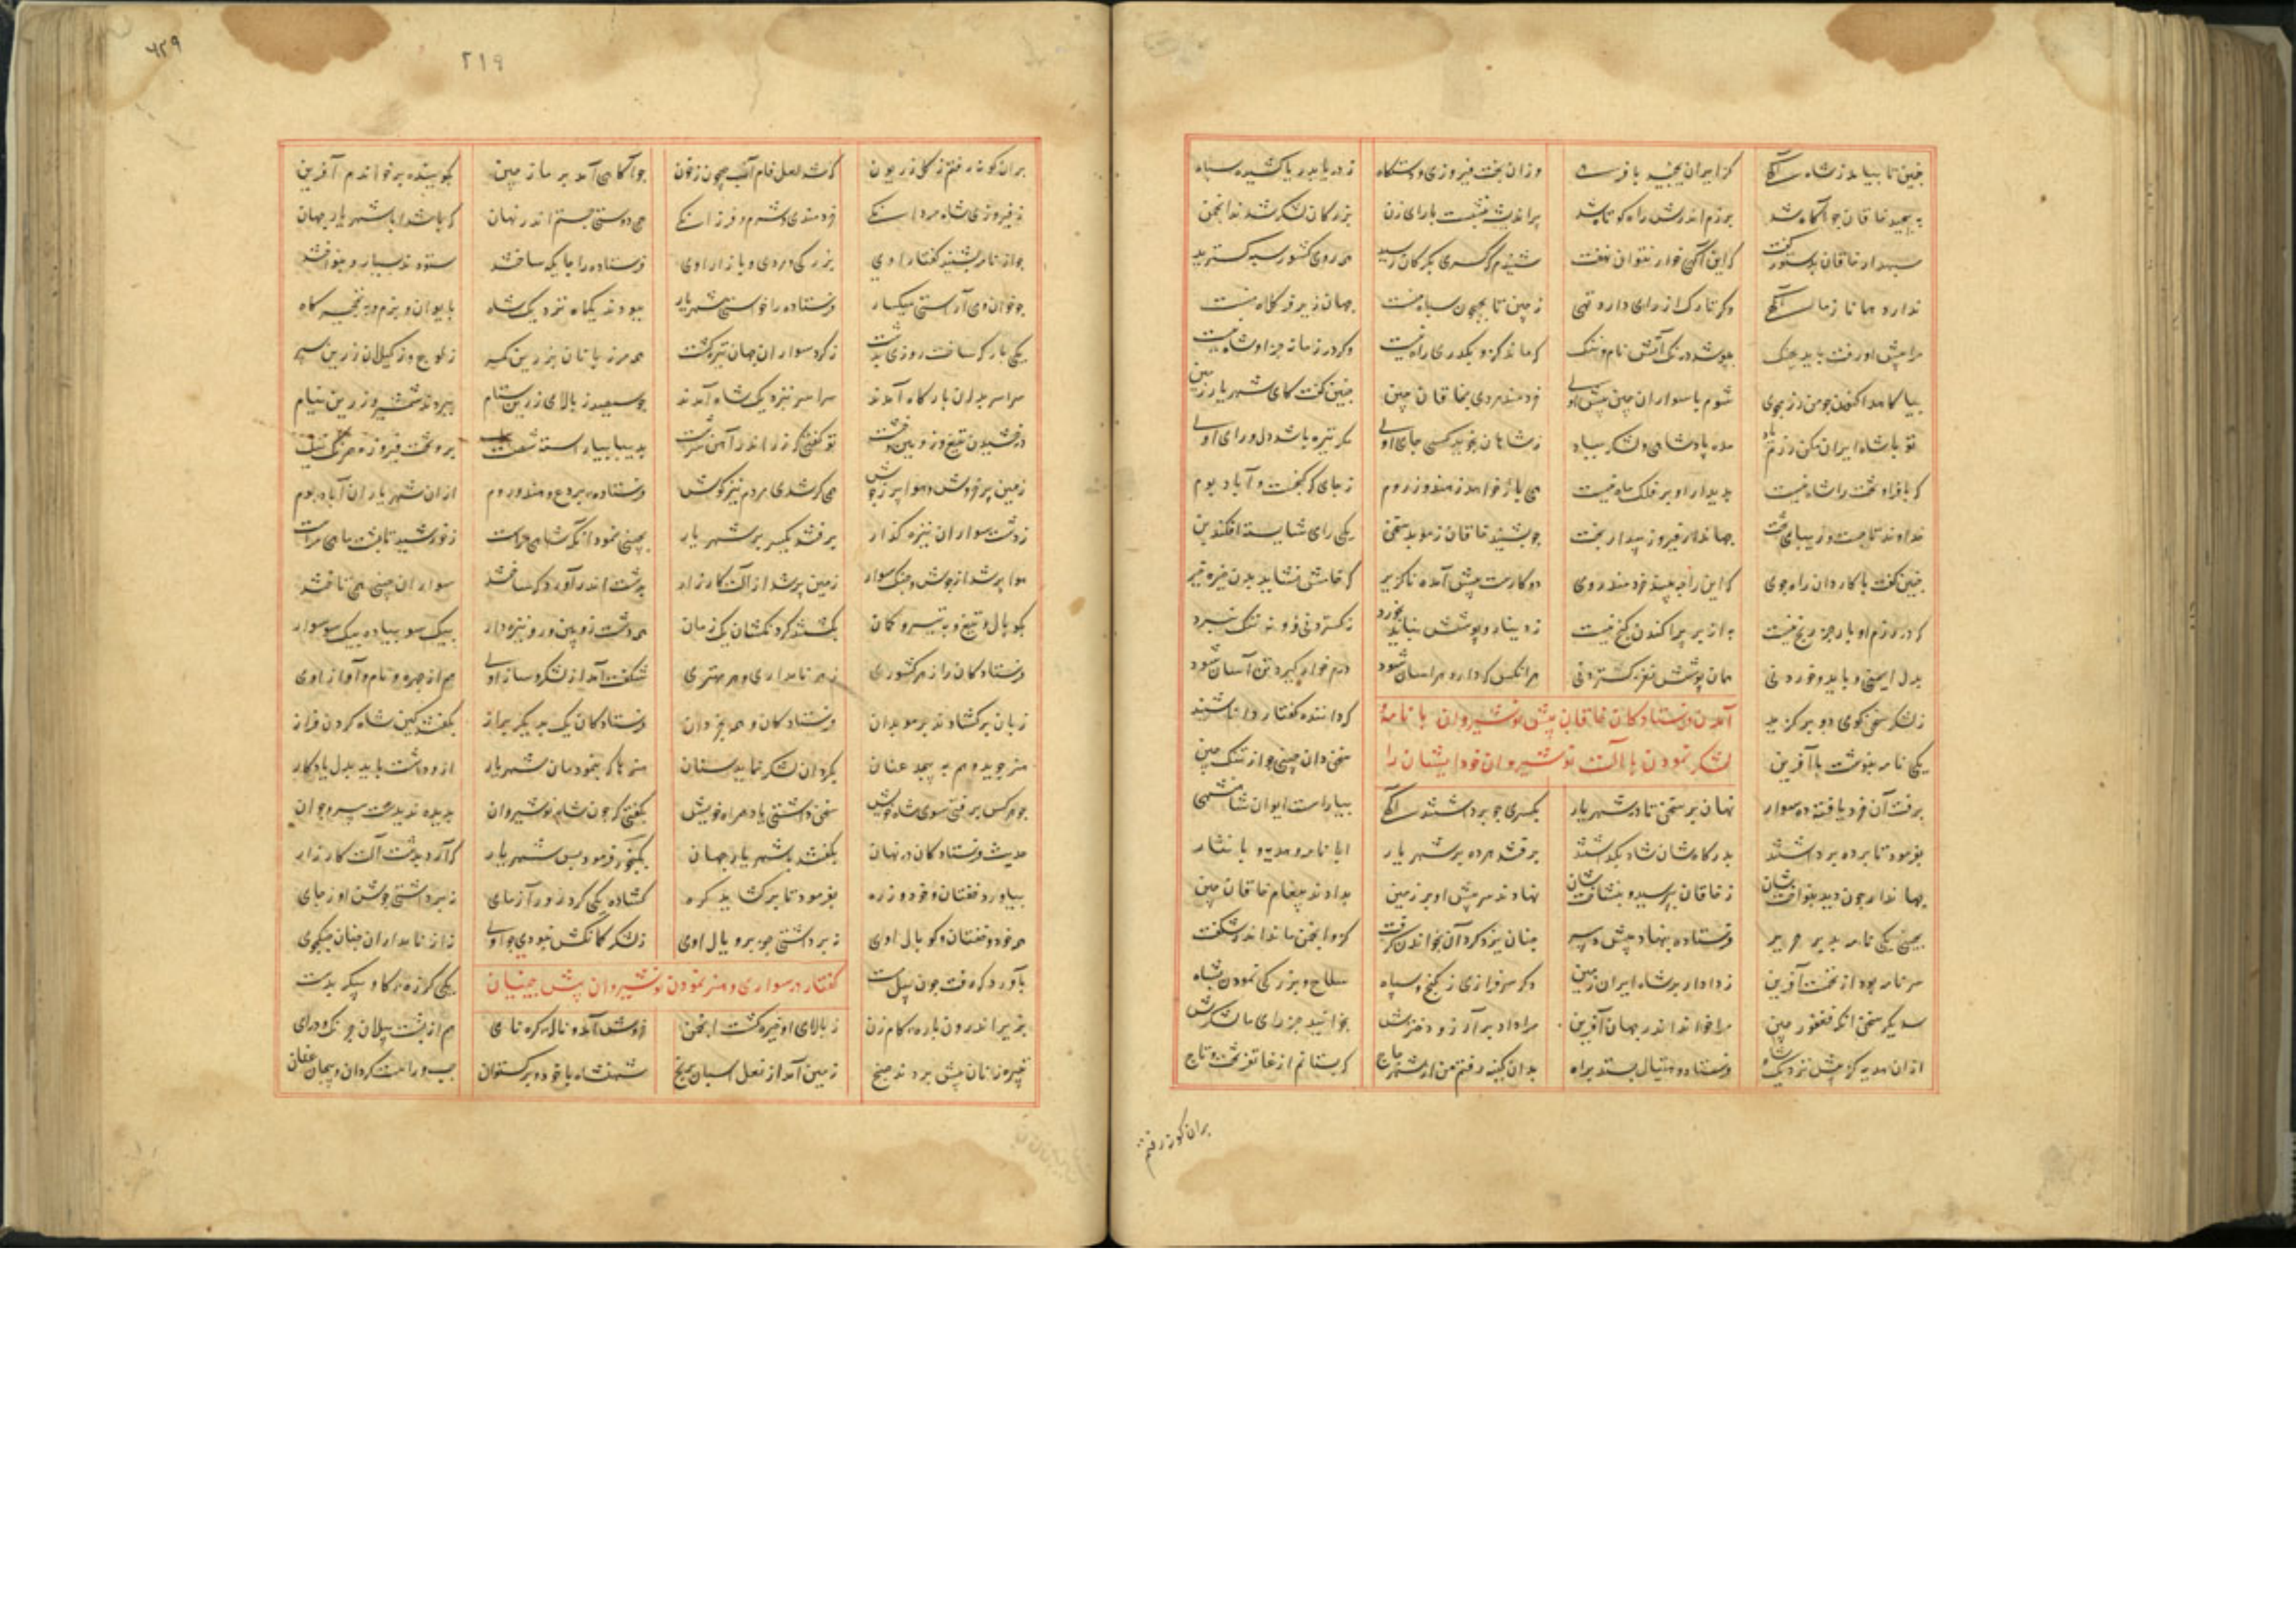 چنین تا بیامد ز شاه آگهی کز ایران بجنبید با فرهی وزان بخت فیروزی و دستگاه ز دریا بدریا کشیده سپاه
بپیچید خاقان چو آگاه شد برزم اندرش راه کوتاه شد پراندیشه بنشست با رای زن بزرگان لشکر شدند انجمن
سپهدار خاقان بدستور گفت که این آگهی خوار نتوان نهفت شنیدم که کسری بگرگان رسید همه روی کشور سپه گسترید
ندارد همانا ز ما آگهی وگر تارک از رای دارد تهی ز چین تا بجیحون سپاه منست جهان زیر فر کلاه منست
مرا پیش او رفت باید بجنگ بپوشد درنگ آتش نام و ننگ که ماند کزو بگذری راه نیست وگر در زمانه جز او شاه نیست
بیاگاهد اکنون چو من رزمجوی شوم با سواران چین پیش اوی خردمند مردی بخاقان چین چنین گفت کای شهریار زمین
تو با شاه ایران مکن رزم یاد مده پادشاهی و لشکر بباد ز شاهان نجوید کسی جای اوی مگر تیره باشد دل و رای اوی
که با فر او تخت را شاه نیست بدیدار او بر فلک ماه نیست همی باژ خواهد ز هند و ز روم ز جای که گنجست و آباد بوم
خداوند تاجست و زیبای تخت جهاندار فیروز و بیدار بخت چو بشنید خاقان ز موبد سخن یکی رای شایسته افکند بن
چنین گفت با کاردان راه جوی که این را چه بیند خردمند روی دو کارست پیش آمده ناگزیر که خامش نشاید بدن خیره خیر
که در رزم او بار جز رنج نیست به از بر پراکندن گنج نیست ز دینار و پوشش نباید بخورد ز گستردنی و و نه تنگ نبرد
بدل ایمنی و باید و خوردنی همان پوشش نغز گستردنی هرآنکس که دارد هراسان شود درم خوار گیرد تن آسان شود
ز لشکر سخن گوی ده برگزید آمدن فرستادگان خاقان پیش نوشیروان با نامهٔ که داننده گفتار داند شنید
یکی نامه بنوشت با آفرین لشکر نمودن با آلت نوشیروان خود ایشان را سخن دان چینی چو ارتنگ چین
برفت آن خردیافته ده سوار نهان پر سخن تا در شهریار بکسری چو برداشتند آگهی بیاراست ایوان شاهنشهی
بفرمود تا پرده برداشتند بدرگاهشان شاد بگذاشتند برفتند هرده بر شهریار ابا نامه و هدیه و با نثار
جهاندار چون دید بنواختشان ز خاقان بپرسید و بنشاختشان نهادند سر پیش او بر زمین بدادند پیغام خاقان چین
بچینی یکی نامه بد بر حریر فرستاده بنهاد پیش دبیر چنان یزدگرد آن بخواندن گرفت کزو انجمن ماند اندر شگفت
سر نامه بود از نخست آفرین ز دادار بر شاه ایران زمین دگر سرفرازی ز گنج و سپاه سلاح و بزرگی نمودن بشاه
سدیگر سخن آنکه فغفور چین مرا خواند اندر جهان آفرین مرا داد بی آرزو دخترش نخوانید جز رای ما لشکرش
ازان هدیه کز پیش نزدیک شاه فرستاد و هیتال بستد براه بدان کینه رفتم من از شهر چاچ که بستانم از غاتفر تخت و تاج
بران گونه رفتم
۶۲۹
۲۱۹
بران گونه رفتم ز گلزریون که شد لعل فام آب جیحون ز خون چو آگاهی آمد بر ما ز چین بگوینده بر خواندم آفرین
ز فیروزی شاه و مردانگی خردمندی و شرم و فرزانگی همی دوستی جستم اندر نهان که باشد ابا شهریار جهان
چو از نامه بشنید گفتار اوی بزرگی و مردی و بازار اوی فرستاده را جایگه ساختند ستودند بسیار و بنواختند
چو خوان و می آراستی میگسار فرستاده را خواستی شهریار ببودند یکماه نزدیک شاه بایوان و بزم و به نخجیرگاه
یکی بارگه ساخت روزی بدشت ز گرد سواران جهان تیره گشت همه مرزبانان بزرین کمر ز بلوچ و ز گیلان زرین سپر
سراسر بدان بارگاه آمدند سراسر نزدیک شاه آمدند چو سیصد ز بالای زرین ستام ببردند شمشیر زرین نیام
درخشیدن تیغ و ژوپین و خشت تو گفتی که زر اندر آهن سرشت بدیبا بیاراسته پشت پیل برو تخت فیروزه همرنگ نیل
زمین پر خروش و هوا پر ز جوش همی کر شدی مردم تیز گوش فرستاده بردع و هند و روم ازان شهریاران آباد بوم
ز دشت سواران نیزه گذار برفتند یکسر بر شهریار بچینی نمود آنکه شاهی کراست ز خورشید تا پشت ماهی مراست
هوا پر شد از جوش و جنگ سوار زمین پر شد از آلت کارزار بدشت اندر آوردگه ساختند سواران چینی همی تاختند
بگوپال و تیغ و بتیر و کمان بگشتند گردنکشان یک زمان همه دشت ژوپین ور و نیزه دار بیک سو پیاده بیک سو سوار
فرستادگان را ز هر کشوری ز هر نامداری و هر مهتری شگفت آمد از لشکر و ساز اوی هم از چهره و نام و آواز اوی
زبان برگشادند بر موبدان فرستادگان و همه بخردان فرستادگان یک بدیگر براز بگفتند کین شاه گردن فراز
هنر جوید و هم نه پیچد عنان بگردان لشکر نماید سنان هنرها که بنمودمان شهریار ازو داشت باید بدل یادگار
چو هر کس برفتی سوی شاه خویش سخن داشتی یاد همراه خویش بگفتی که چون شاه نوشیروان بدیده ندیدست پیر و جوان
حدیث فرستادگان در نهان بگفتند با شهریار جهان بگنجور فرمود پس شهریار که آرد بدشت آلت کارزار
بیاورد خفتان و خود و زره بفرمود تا برگشاید گره گشاده یکی گرد زورآزمای نبرداشتی جوشن او ز جای
همه خود و خفتان و گوپال اوی نبرداشتی جز بر و یال اوی ز لشکر کمانکش نبودی چو اوی نه از نامداران چنان جنگجوی
بآوردگه رفت چون پیل مست گفتار در سواری و هنر نمودن نوشیروان پیش چینیان یکی گرزهٔ گاو پیکر بدست
بزیر اندرون باره گام زن ز بالای او خیره گشت انجمن خروش آمد و ناله کره نای هم از پشت پیلان جرنگ درای
تبیره زنان پیش بردند صنج زمین آمد از نعل اسبان برنج شهنشاه با خود و برگستوان چپ و راست گردان و پیچان عنان